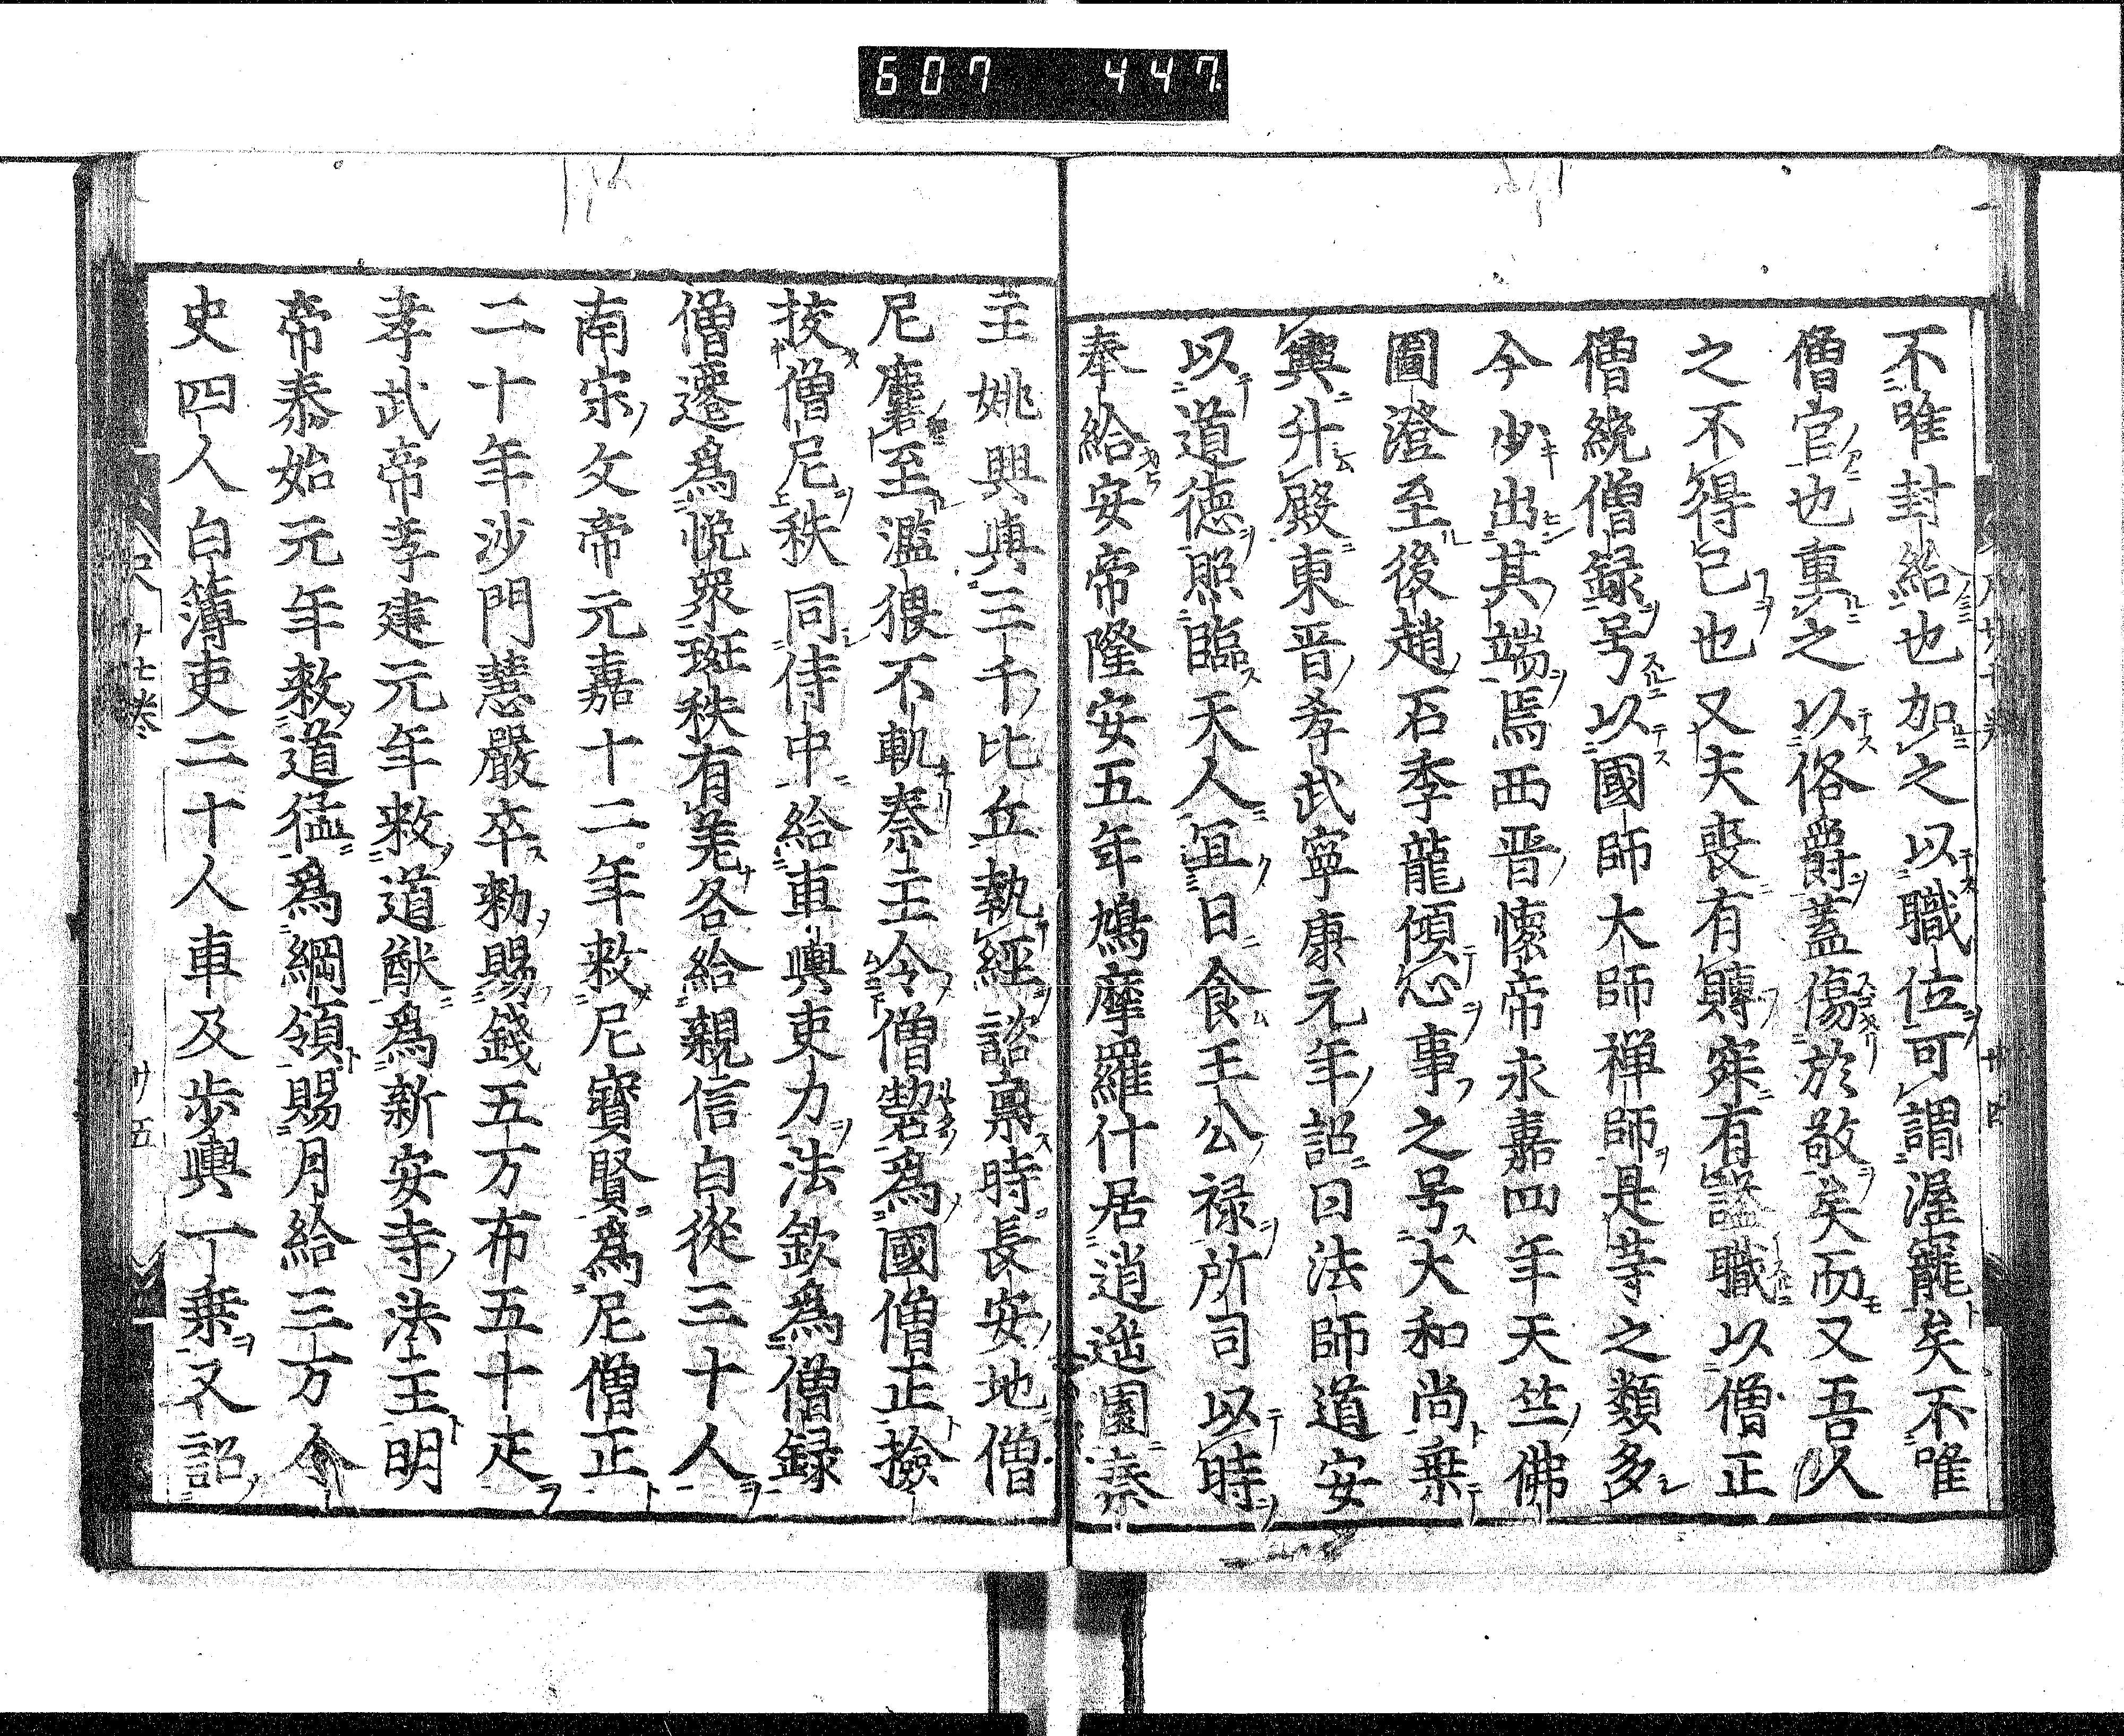 607 447
不唯封給也加之以職位可謂渥寵矣不唯
僧官也重之以佫爵蓋傷於敬矣而又吾人
之不得已也又夫喪有賻寀有謚職以僧正
僧統僧録号以國師大師禅師是等之類多
今少出其端焉西晋懷帝永嘉四年天竺佛
圖澄至後趙石季龍傾心事之号大和尚乗
輿升殿東晋孝武寧康元年詔曰法師道安
以道德照臨天人宜日食王公禄所司以時
奉給安帝隆安五年鳩摩羅什居逍遥園秦
主姚興與三千比丘執經諮稟時長安地僧
尼麏至濫猥不軌秦主令僧䂮爲國僧正撿
挍僧尼秩同侍中給車輿吏力法欽爲僧録
僧遷爲悦衆班秩有羌各給親信白從三十人
南宗文帝元嘉十二年敕尼寳賢爲尼僧正
二十年沙門慧嚴卒勑賜錢五万布五十疋
孝武帝孝建元年敕道猷爲新安寺法主明
帝泰始元年敕道猛爲綱領賜月給三万令
史四人白簿吏二十人車及歩輿一乗又詔
廿五